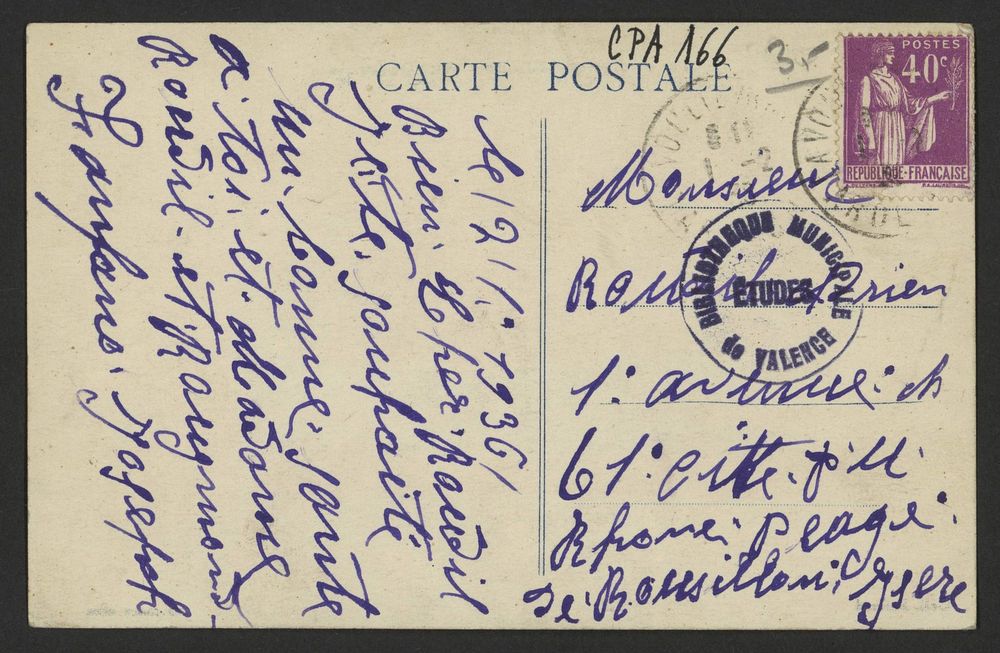 CPA 166
3,-
CARTE POSTALE
POSTES
40c
REPUBLIQUE-FRANÇAISE
BIBLIOTHEQUE MUNICIPALE
ETUDES
de VALENCE
le 12/1° 1936
Bien Cher Roudil
Je te souhaite
un bonne sante
a toi et Madame
Roudil et Raymond
Fanfans Joseph
Monsieur
Roudil
1° avenue
61° Citte
Rhone Peage
de Rousillon Ysere